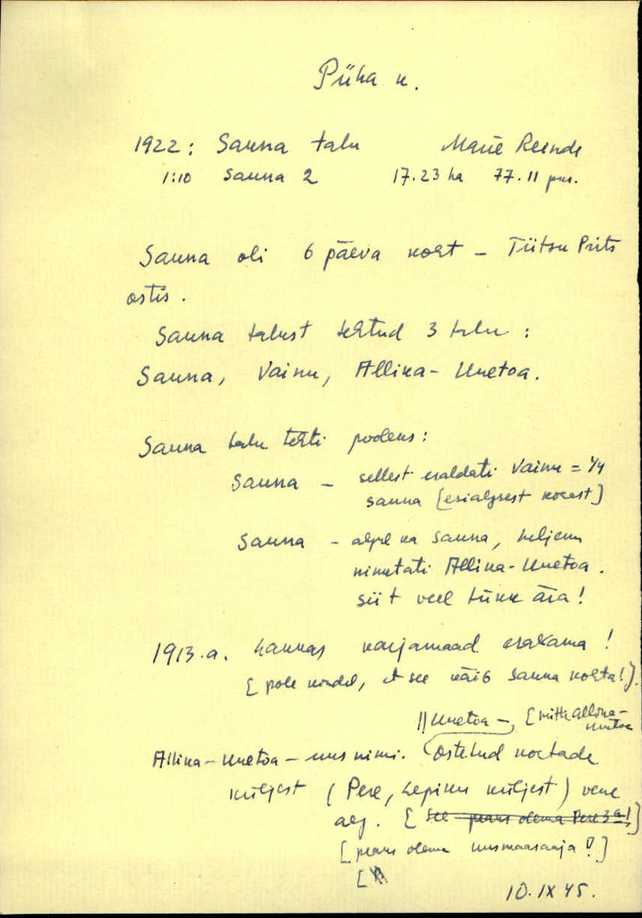 Püha k.
1922: Sauna talu Marie Reinok
1:10 Sauna 2 17.23 ha 77.11 pun.
Sauna oli 6 päeva koht – Tiitsu Prits
ostis.
Sauna talust tehtud 3 talu:
Sauna, Vainu, Allika-Unetoa.
Sauna talu tehti pooleks:
Sauna – sellest eraldati Vainu = 1/4
sauna [esialgsest kohast]
Sauna – algul ka Sauna, hiljem
nimetati Allika-Unetoa.
siit veel tükk ära!
1913.a. hakkas karjamaad erakama!
[pole kindel, et see käib Sauna kohta!].
|| Unetoa –, [mitte Allika-
Unetoa
Allika-Unetoa – uus nimi. Ostetud kohtade
küljest (Pere, Lepiku küljest) vene
aeg. [see peaks olema Pere 3a!]
[peaks olema uusmaasaaja!]
[
10.IX 45.